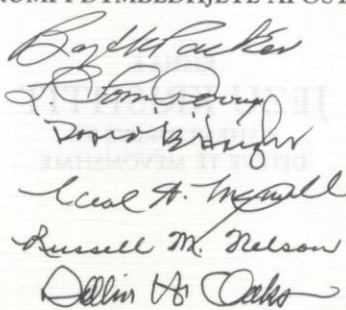 DYMBËDHJETË
Boyd K Packer
L. Tom Perry
David B. Haight
Neal A. Maxwell
Russell M. Nelson
Dallin H. Oaks